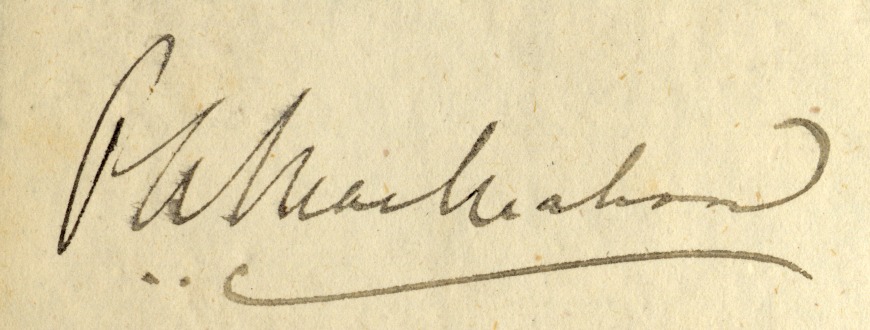 P. A. MacMahon